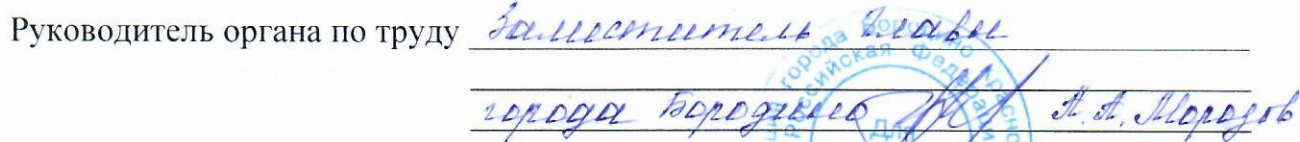 Руководитель органа по труду Заместитель Главы
города Бородино А.А. Морозов
города Бородино Красно
Российская Федераци
Для